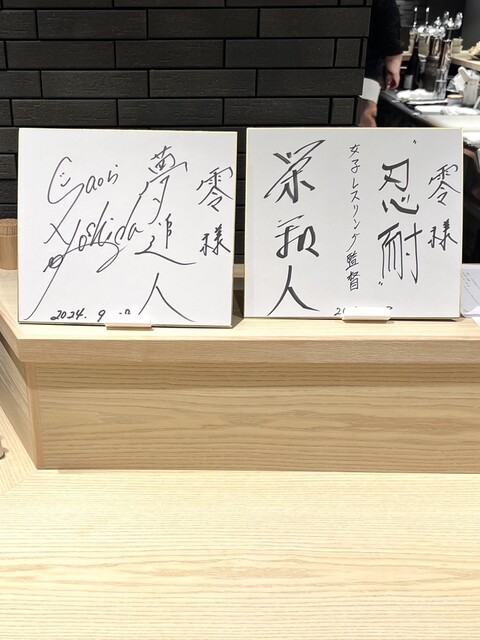 零様
夢追人
Saori Yoshida
2024. 9
零様
"忍耐"
女子レスリング監督
栄和人